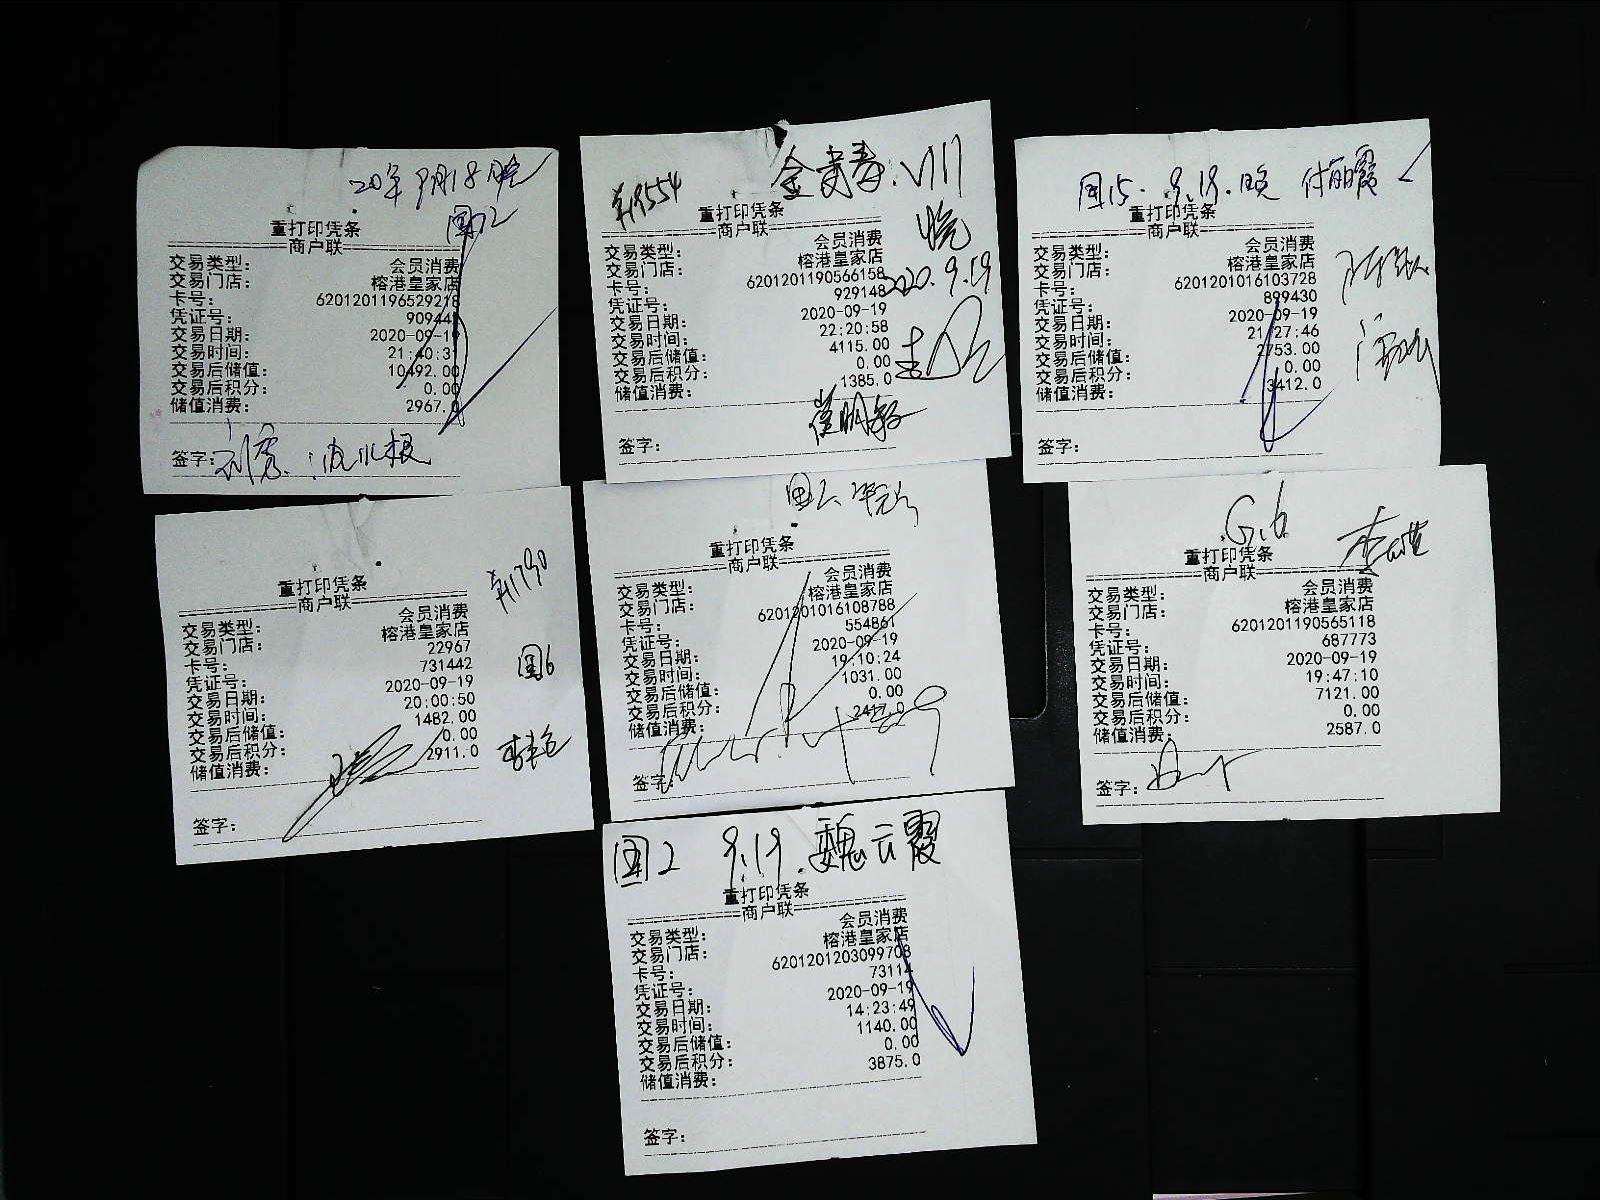 20年9月18晚
重打印凭条
商户联
交易类型: 会员消费
交易门店: 榕港皇家店
卡号: 6201201196529218
凭证号: 90944
交易日期: 2020-09-19
交易时间: 21:40:3
交易后储值: 10492.00
交易后积分: 0.00
储值消费: 2967.0
签字:
金贵春:V111
晚
2020.9.19
重打印凭条
商户联
交易类型: 会员消费
交易门店: 榕港皇家店
卡号: 6201201190566158
凭证号: 929148
交易日期: 2020-09-19
交易时间: 22:20:58
交易后储值: 4115.00
交易后积分: 0.00
储值消费: 1385.0
签字:
国15. 9.19.晚 付丽霞
重打印凭条
商户联
交易类型: 会员消费
交易门店: 榕港皇家店
卡号: 6201201016103728
凭证号: 899430
交易日期: 2020-09-19
交易时间: 21:27:46
交易后储值: 2753.00
交易后积分: 0.00
储值消费: 3412.0
签字:
国6
重打印凭条
商户联
交易类型: 会员消费
交易门店: 榕港皇家店
卡号: 22967
凭证号: 731442
交易日期: 2020-09-19
交易时间: 20:00:50
交易后储值: 1482.00
交易后积分: 0.00
储值消费: 2911.0
签字:
重打印凭条
商户联
交易类型: 会员消费
交易门店: 榕港皇家店
卡号: 6201201016108788
凭证号: 554861
交易日期: 2020-09-19
交易时间: 19:10:24
交易后储值: 1031.00
交易后积分: 0.00
储值消费: 2417.0
签字:
G.6
重打印凭条
商户联
交易类型: 会员消费
交易门店: 榕港皇家店
卡号: 6201201190565118
凭证号: 687773
交易日期: 2020-09-19
交易时间: 19:47:10
交易后储值: 7121.00
交易后积分: 0.00
储值消费: 2587.0
签字:
国2 9.19.魏云霞
重打印凭条
商户联
交易类型: 会员消费
交易门店: 榕港皇家店
卡号: 6201201203099708
凭证号: 73114
交易日期: 2020-09-19
交易时间: 14:23:49
交易后储值: 1140.00
交易后积分: 0.00
储值消费: 3875.0
签字: